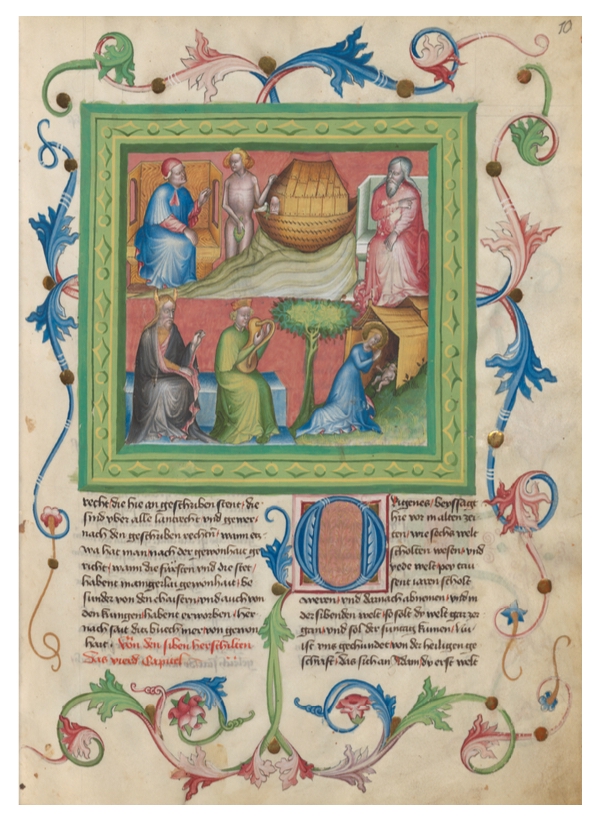 10
recht / die hie an geschriben stent / die
sind vber alle lantrecht vnd gewer
nach den geschriben rechten / wann et
wa hat man nach der gewonhait ge
richt / wann die fürsten vnd die stet /
habent manigerlai gewonhait / be
sunder von den chaisern / vnd auch von
den kungen habent erworben / her
nach sait ditz buch mer von gewon
hait / Von den siben herschilten
Das vierd Capitel
Origenes / weyssagt
hie vor in alten zei
ten / wie sechs welt
scholten wesen / vnd
yede welt per tau
sent iaren scholt
weren / vnd darnach abnemen / vnd in
der sibenden welt / so solt dr welt gar zer
gen / vnd sol der suntag kumen / Nu
ist vns gechundet von der heiligen ge
schrift / das sich an Adam / dy erst welt